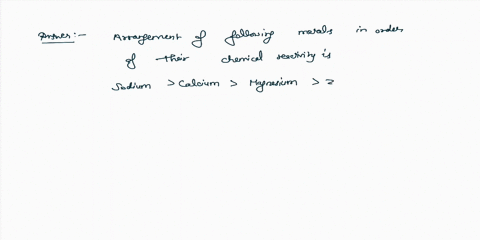 Answer:- Arrangement of following metals in order
of their chemical reactivity is
Sodium > Calcium > Magnesium > z